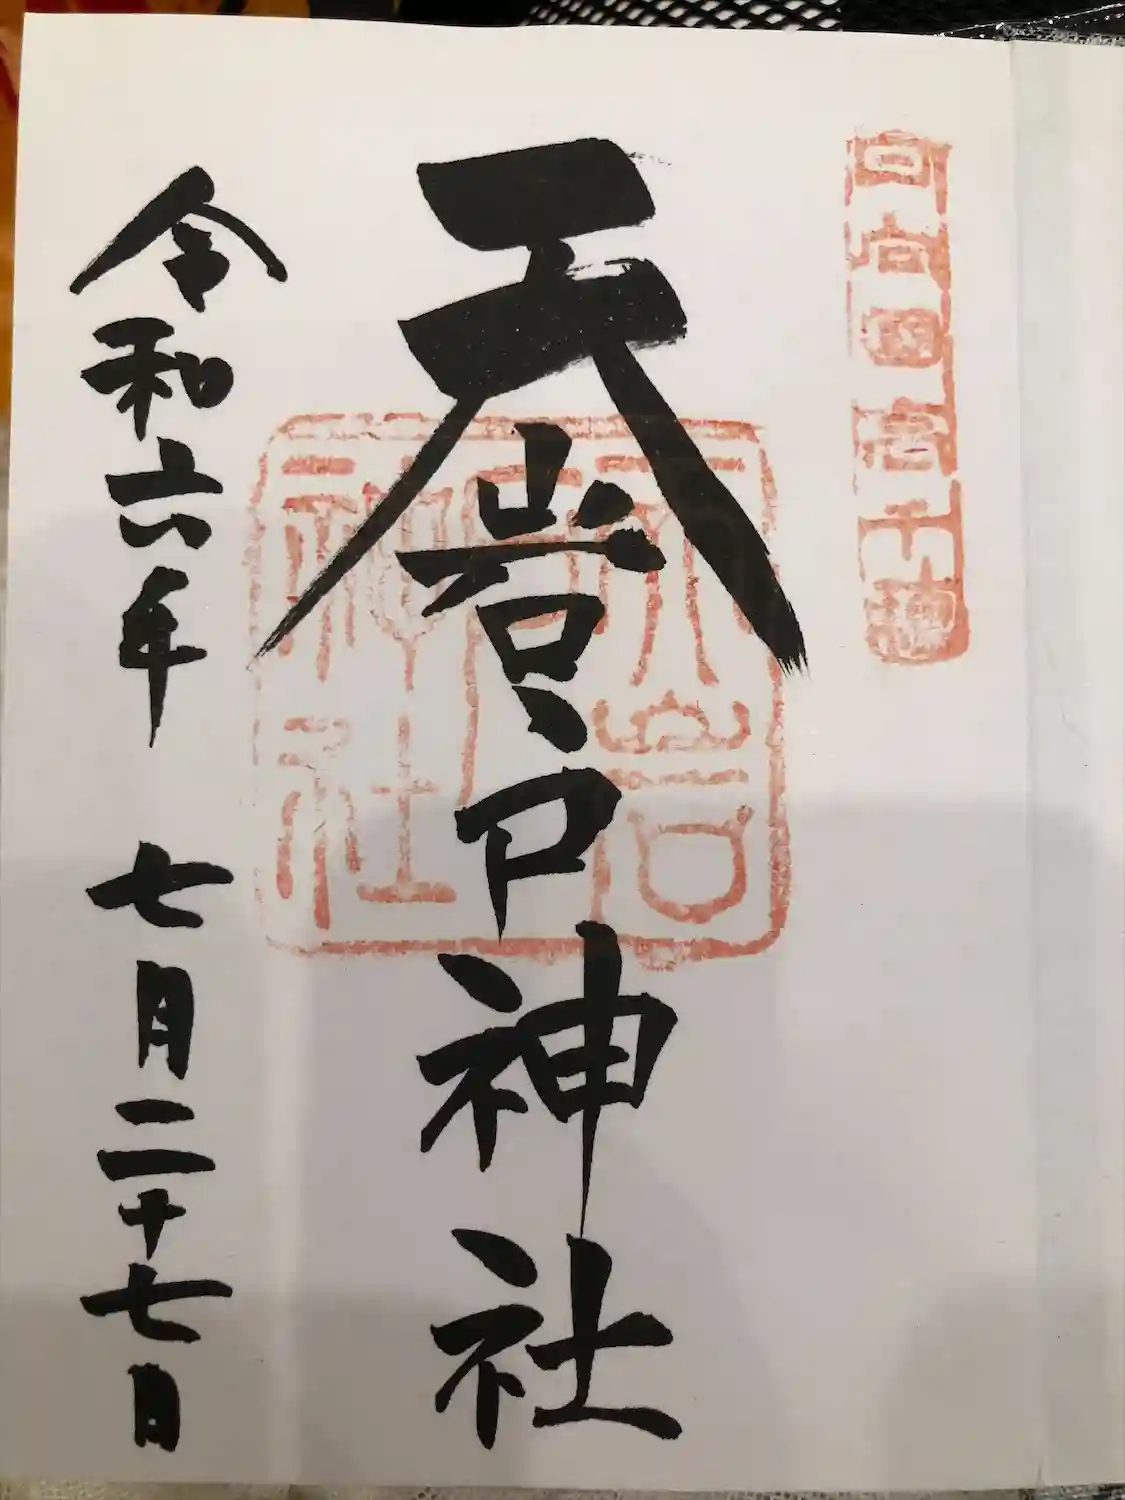 日向國高千穂
天岩戸神社
天岩戸神社
令和六年 七月二十七日